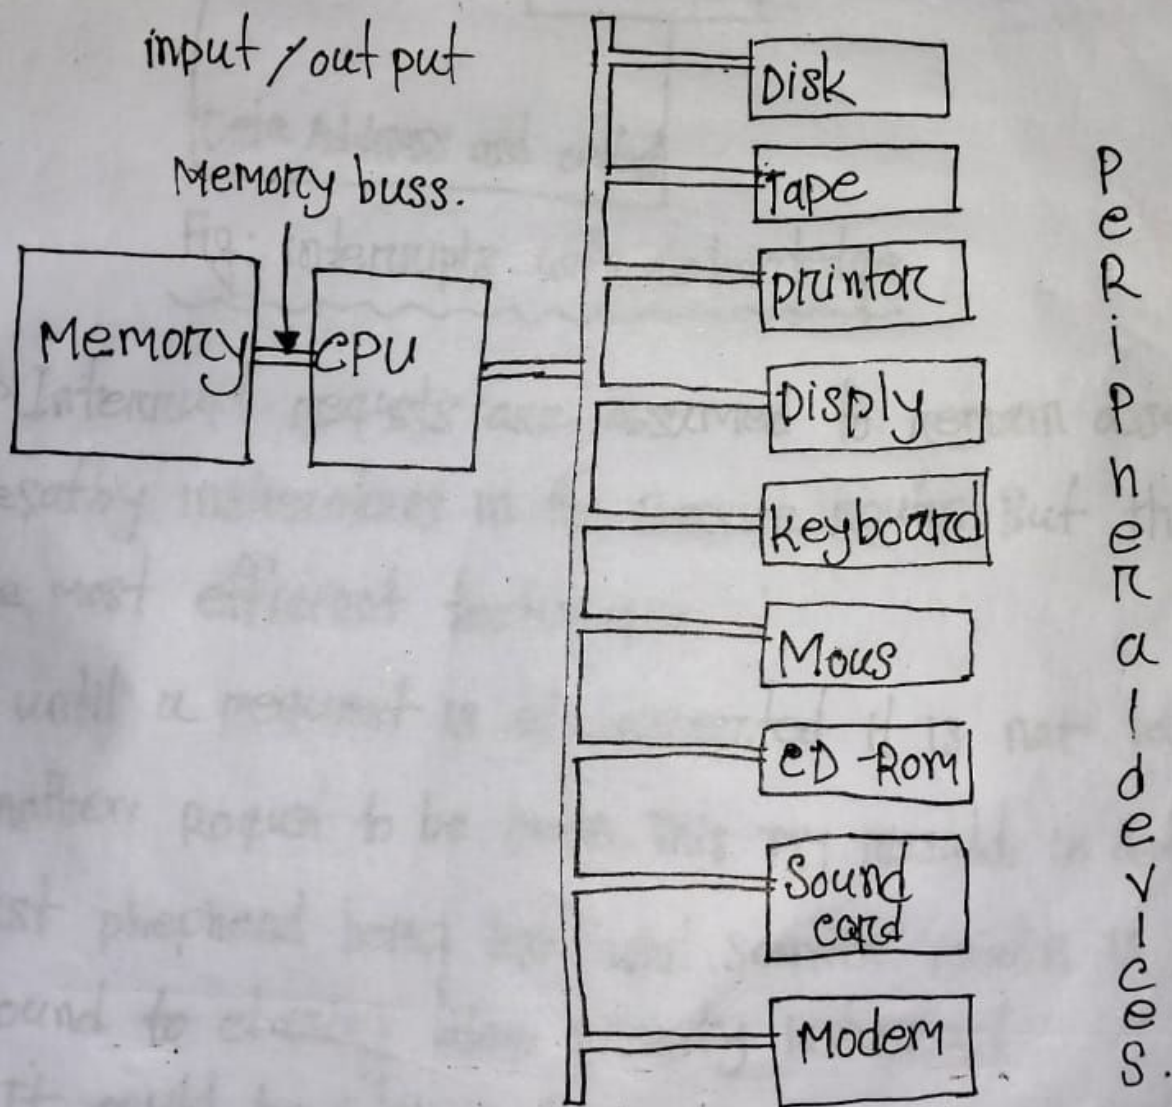 input / out put
Memory buss.
Memory
CPU
Disk
Tape
printor
Disply
keyboard
Mous
CD -Rom
Sound
card
Modem
PeRiPheral devices.